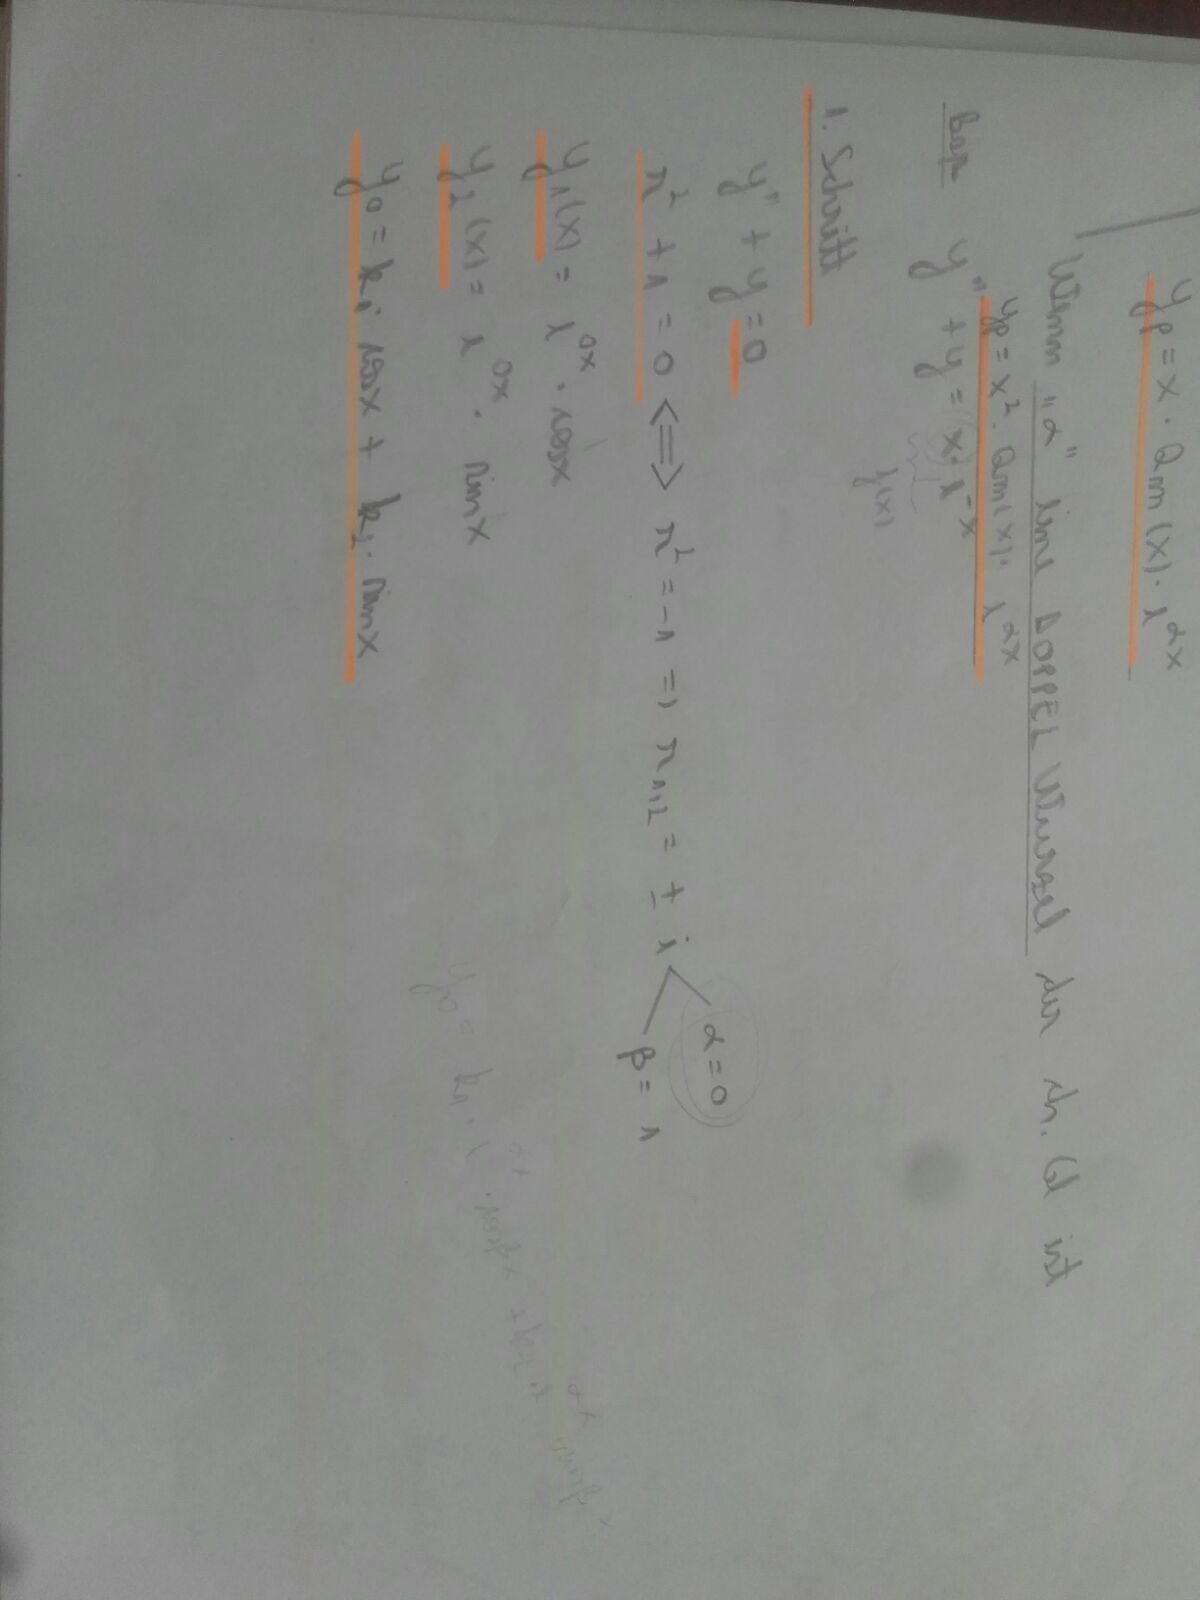 yp = x · Qm(x) · e^αx
Wenn „α" eine DOPPEL Wurzel der ch. Gl ist
yp = x² · Qm(x) · e^αx
Bsp y" + y = x · e^-x
f(x)
1. Schritt
y" + y = 0
r² + 1 = 0 <=> r² = -1 => r1,2 = ± i
α = 0
β = 1
y1(x) = e^0x · cosx
y2(x) = e^0x · sinx
y0 = k1 · e^αx · cosβx + k2 · e^αx · sinβx
y0 = k1 · cosx + k2 · sinx